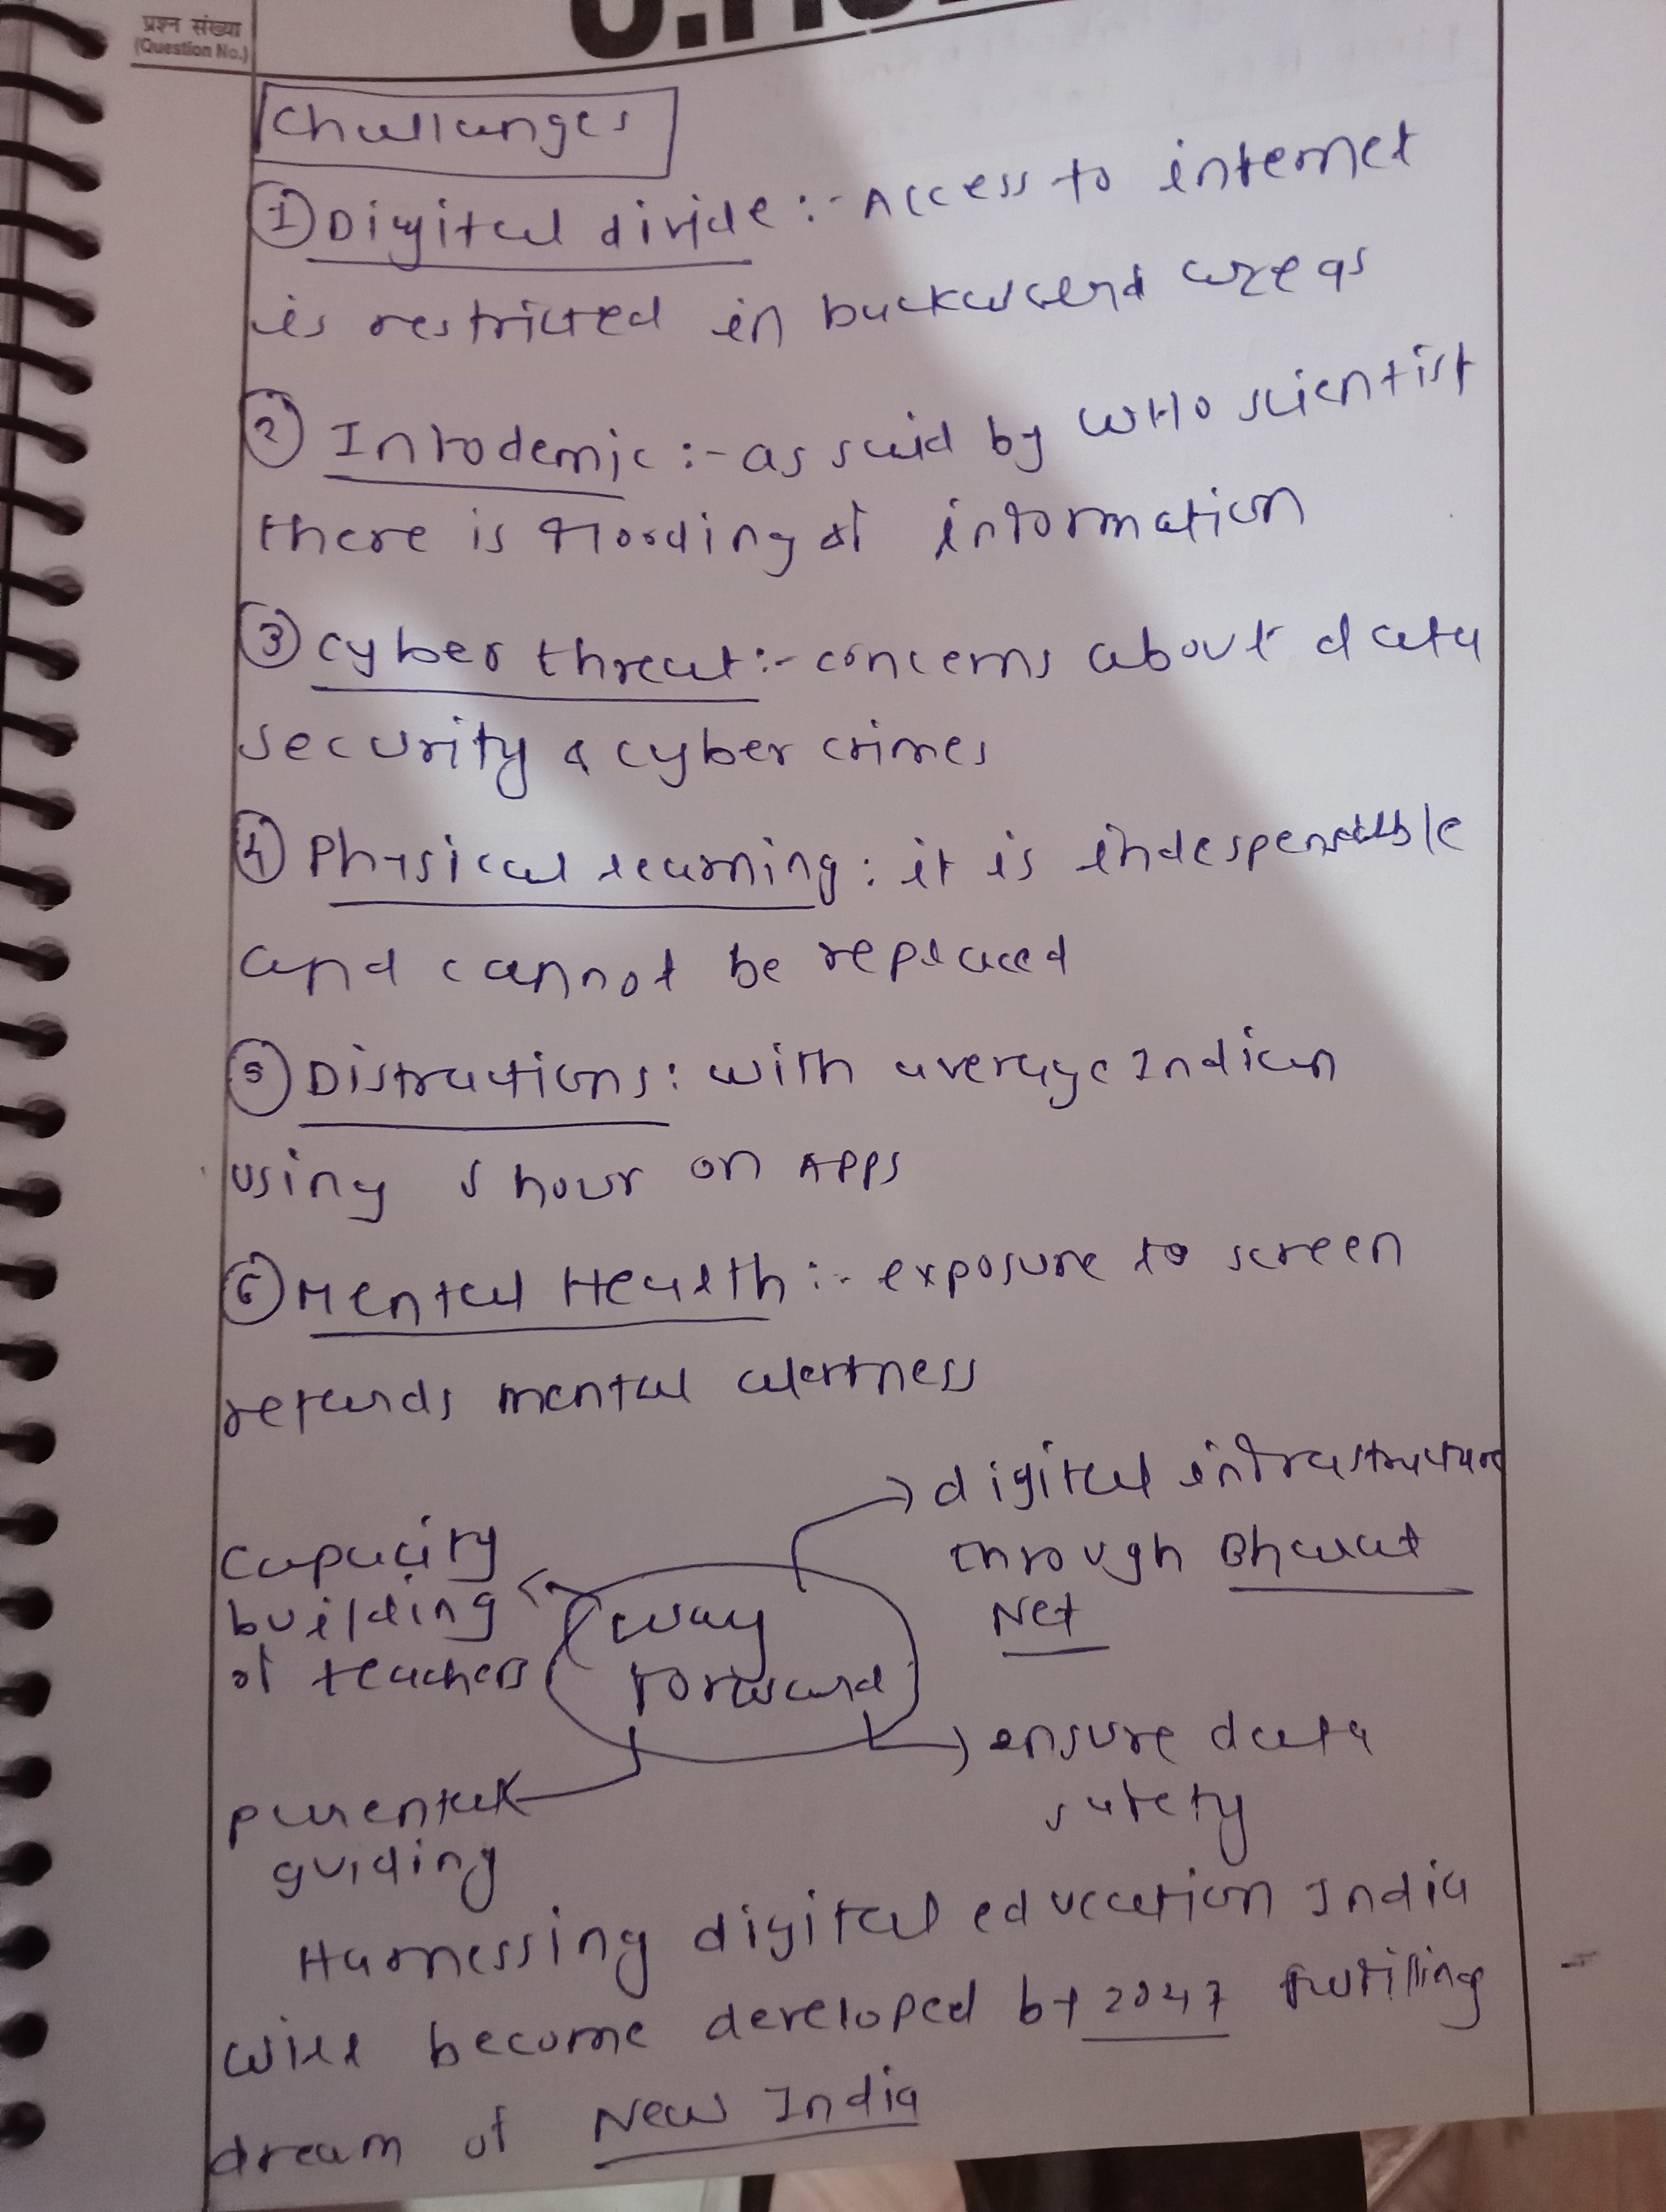 प्रश्न संख्या
(Question No.)
Challenges
① Digital divide :- Access to internet
is restricted in backward areas
② Infodemic :- as said by WHO scientist
there is flooding of information
③ cyber threat :- concerns about data
security & cyber crimes
④ Physical learning : it is
and cannot be replaced
⑤ Distractions : with average Indian
using 5 hour on APPS
⑥ Mental Health :- exposure to screen
retards mental alertness
digital infrastructure
through Bharat
Net
capacity
building
of teachers
way
forward
ensure data
safety
parental
guiding
Harnessing digital education India
will become developed by 2047 fulfilling
dream of New India